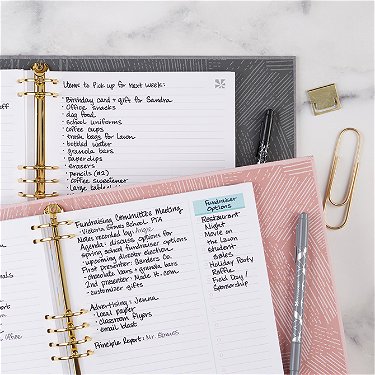 Items to Pick up for next week:
• Birthday card + gift for Sandra
• Office snacks
• dog food
• School uniforms
• coffee cups
• trash bags for lawn
• bottled water
• granola bars
• paperclips
• erasers
• pencils (#2)
• Coffee sweetener
• Large table
Fundraising Committee Meeting
- Victoria Jones School PTA
Notes recorded by: Angie
Agenda: discuss options for
spring school fundraiser options
- upcoming director election
First presenter: Sanders Co.
- chocolate bars + granola bars
2nd presenter: Made It.com
- customizer gifts
Advertising: Jenna
- local paper
- classroom flyers
- email blast
Principle Report: Mr. Strauss
Fundraiser
Options
Restaurant
Night
Movie on
the Lawn
Student
Sales
Holiday Party
Raffle
Field Day/
Sponsorship
Office